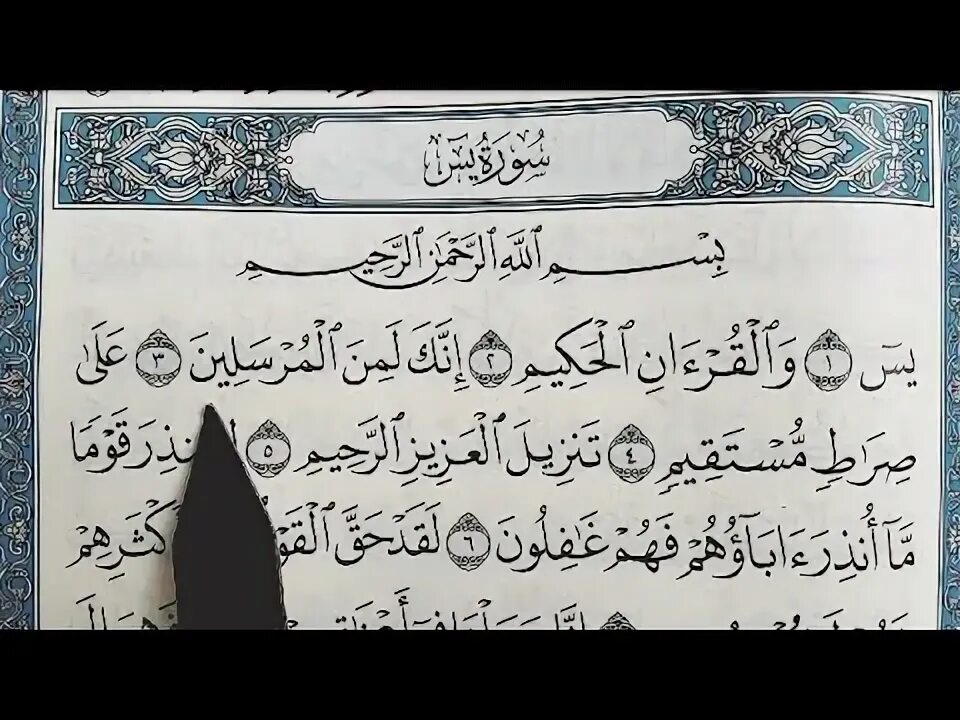 سُورَةُ يسٓ
بِسْمِ ٱللَّهِ ٱلرَّحْمَٰنِ ٱلرَّحِيمِ
يسٓ ١ وَٱلْقُرْءَانِ ٱلْحَكِيمِ ٢ إِنَّكَ لَمِنَ ٱلْمُرْسَلِينَ ٣ عَلَىٰ
صِرَٰطٍ مُّسْتَقِيمٍ ٤ تَنزِيلَ ٱلْعَزِيزِ ٱلرَّحِيمِ ٥ قَوْمًا
مَّآ أُنذِرَ ءَابَآؤُهُمْ فَهُمْ غَٰفِلُونَ ٦ لَقَدْ حَقَّ